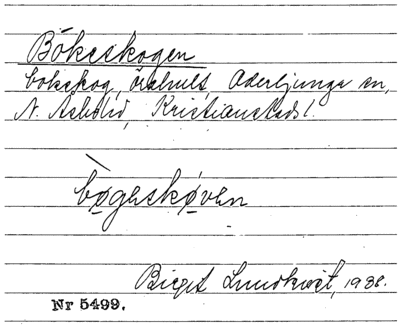 Bökeskogen
bokskog, Örahult, Oderljunga sn,
N. Åsbohd, Kristianstads l.
bøgeskøven
Birgit Lundkvist, 1938.
Nr 5499.